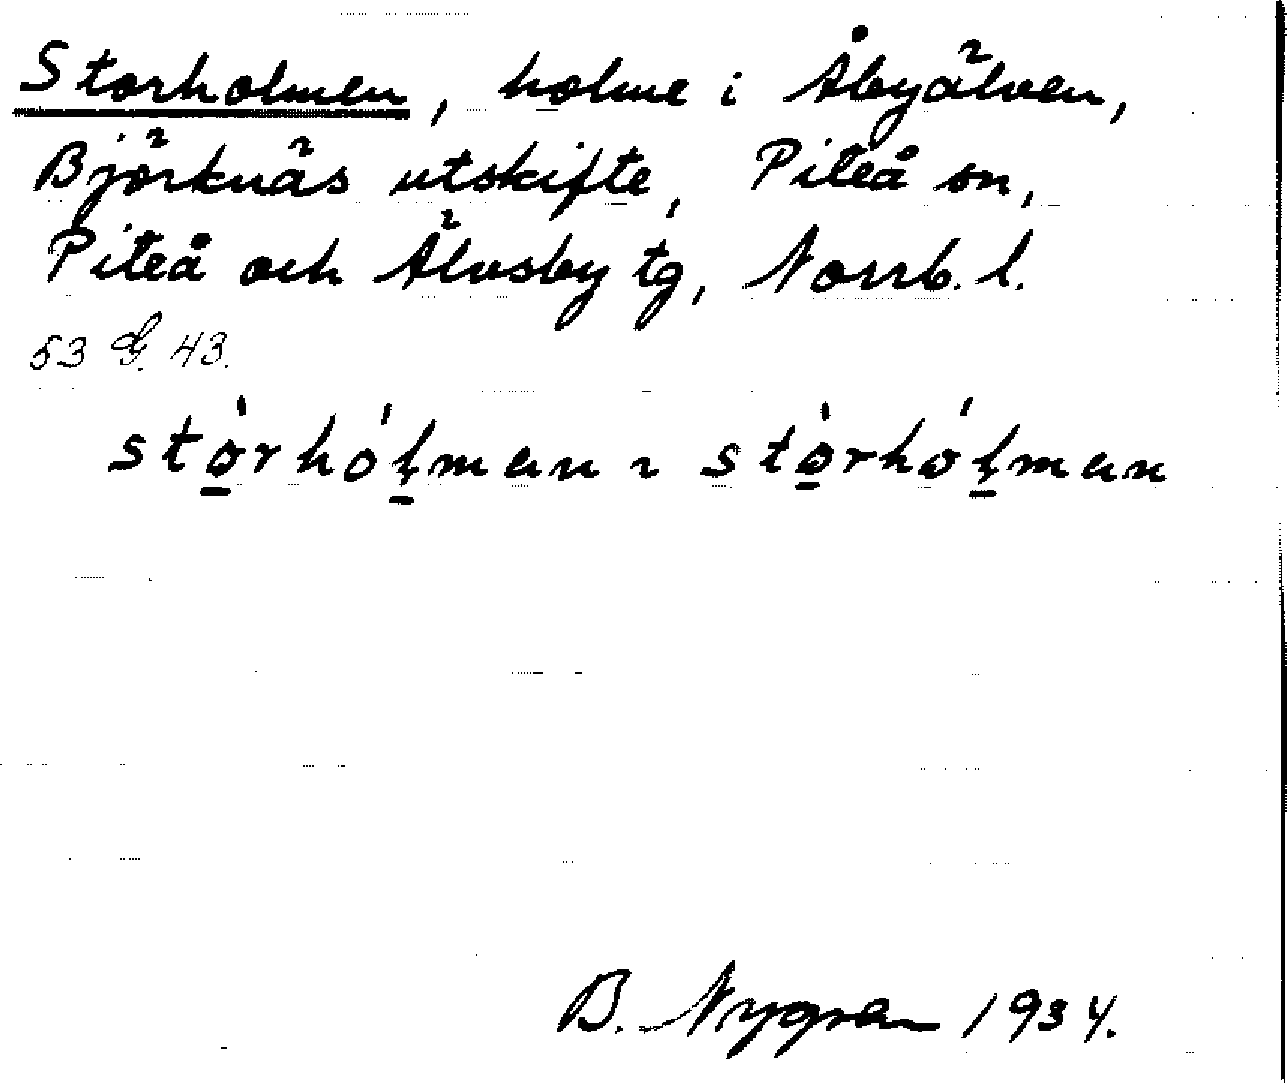 Storholmen, holme i Åbyälven,
Björknäs utskifte, Piteå sn,
Piteå och Älvsby tg, Norrb. l.
53 G. 43.
stò̱rhóḻman ~ stò̱rhóḻman
B. Nygren 1934.